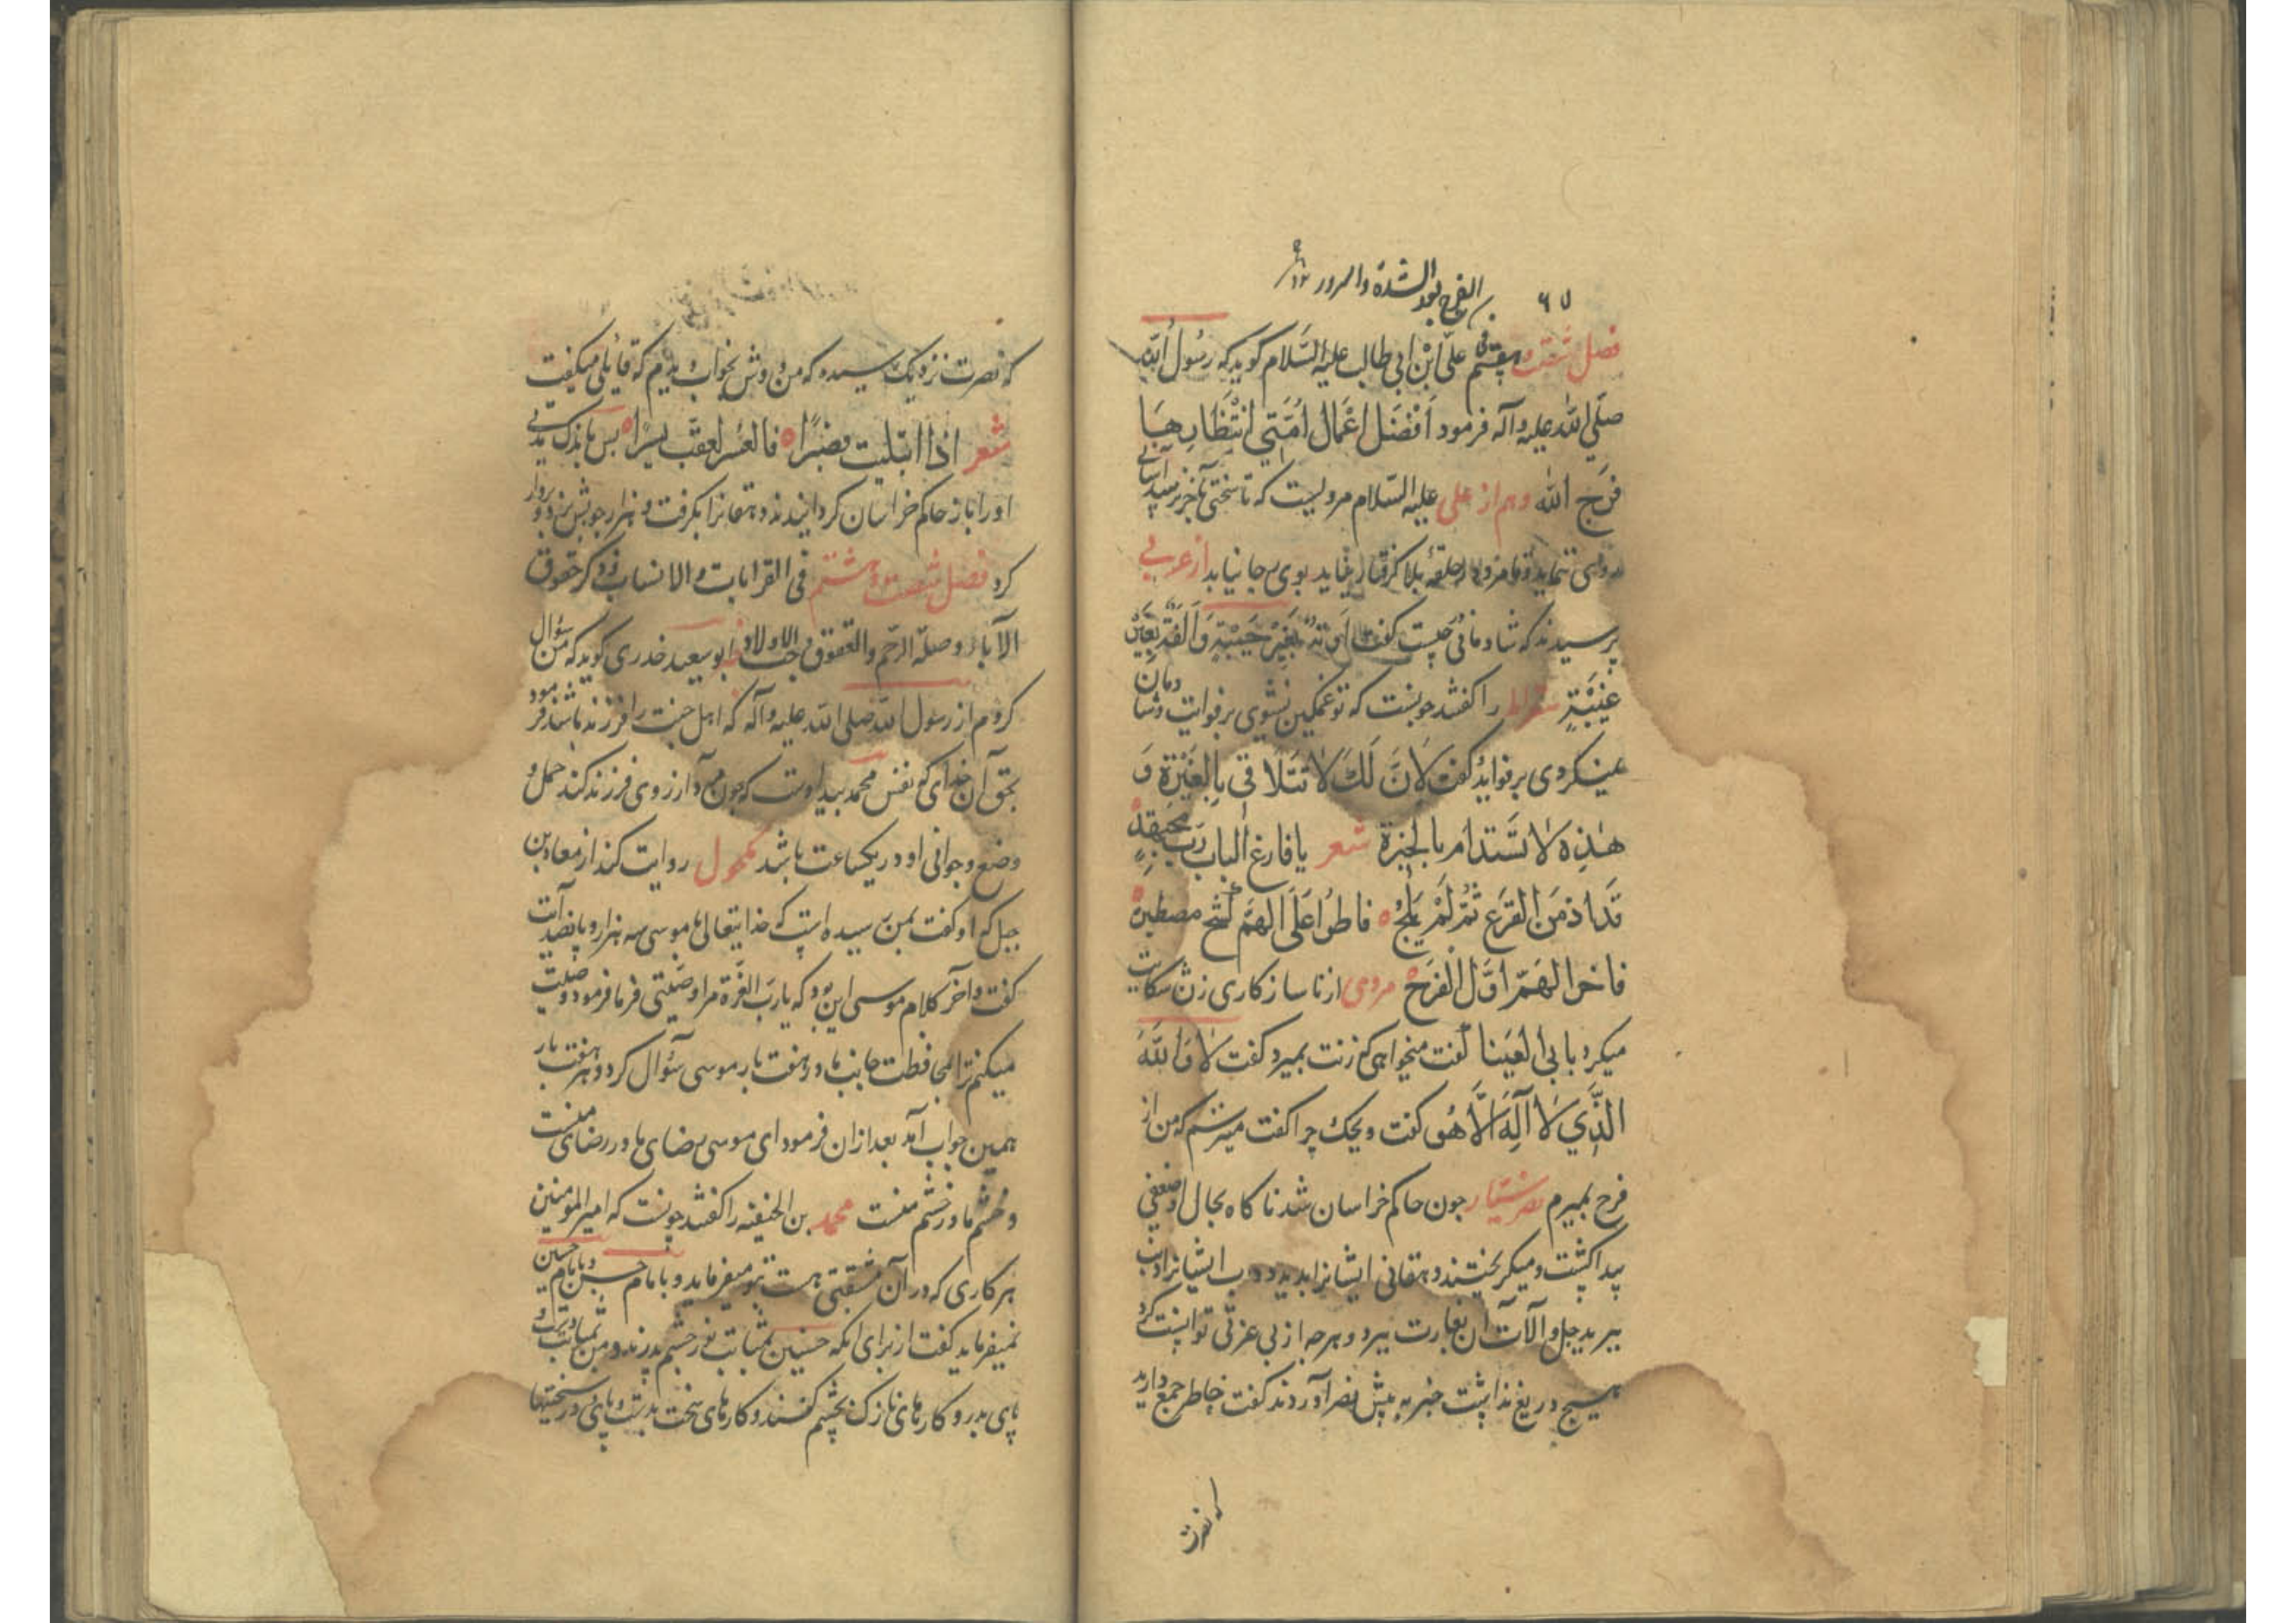 ٦٧ الفرج بعد الشدة والسرور
فصل شصت و هفتم فی علی ابن ابی طالب علیه السلام گوید که رسول الله
صلی الله علیه و آله فرمود اَفْضَل اعْمَال اُمَّتِی انْتِظَارهَا
فَرَج الله و هم از علی علیه السلام مرویست که تا سختی بآخر نرسد آسانی
نماید و تا مرد در حلقه بلا گرفتار نیاید بوی رجا نیابد از عربی
پرسیدند که شادمانی چیست گفت اَوْبَة بِغَیْرِ خَیْبَةٍ وَ اُلْفَة بعَیْن
غَیْبَةٍ سقراط را گفتند چونست که تو غمگین نشوی بر فوایت و شادمان
نگردی بر فواید گفت لِاَنَّ ذلِكَ لَا تَتَلَاقی بِالعَبْرَة وَ
هٰذِهِ لَا تَسْتَدَام بالحبرة شعر یا فارغ الباب رُبَّ
قدا ذمن القرع ثُمَّ لَمْ یَلِجُ فاطوا عَلَی الهَمِّ کشح مصطبر
فاخر الهَمّ اوَّل الْفَرَجْ مردی از ناسازکاری زن شکایت
میکرد با ابی العینا گفت میخواهی که زنت بمیرد گفت لَا وَ اللّٰهِ
الَّذِی لَا اِلٰهَ اِلَّا هُوَ گفت ویحك چرا گفت میترسم که من از
فرح بمیرم نصر سیار چون حاکم خراسان شد ناگاه بحال او ضعفی
پیدا گشت و میگریختند دهقانی ایشانرا بدید و
ببرید جل و آلات آن بغارت ببرد و هرچه از بی عزتی توانست کرد
هیچ دریغ نداشت خبر به پیش نصر آوردند گفت خاطر جمع دارید
که نصرت
که نصرت نزدیك رسیده که من دوش بخواب دیدم که قایلی میگفت
شعر اذا ابتلیت فصبرًا فالعسر یعقب یسرًا پس باندك مدتی
او را باز حاکم خراسان گردانیدند دهقانرا بگرفت و هزار چوبش بزد و بردار
کرد فصل شصت و هشتم فی القرابات و الانساب و ذکر حقوق
الآباء و صلة الرحم و العقوق و حب الاولاد ابو سعید خدری گوید که من سؤال
کردم از رسول الله صلی الله علیه و آله که اهل جنت را فرزند باشد فرمود
بحق آن خدای که نفس محمد بید اوست که چون مرد آرزوی فرزند کند حمل و
وضع و جوانی او در یکساعت باشد مکحول روایت کند از معاذ بن
جبل که او گفت بمن رسیده است که خدایتعالی با موسی سه هزار و پانصد آیت
گفت و آخر کلام موسی این بود که یا رب العزة مرا وصیتی فرما فرمود وصیت
میکنم ترا بمحافظت جانب مادر هفت بار موسی سؤال کرد و هر هفت بار
همین جواب آمد بعد از آن فرمود ای موسی رضای ما در رضای منست
و خشم مادر خشم منست محمد بن الحنفیه را گفتند چونست که امیر المومنین
هر کاری که در آن مشقتی هست بتو میفرماید و با امام حسن و با امام حسین
نمیفرماید گفت از برای آنکه حسنین بمثابت نور چشم پدرند و من بمثابت دست و
پای پدر و کارهای نازك بچشم کنند و کارهای سخت بدست و پای و در سختیها